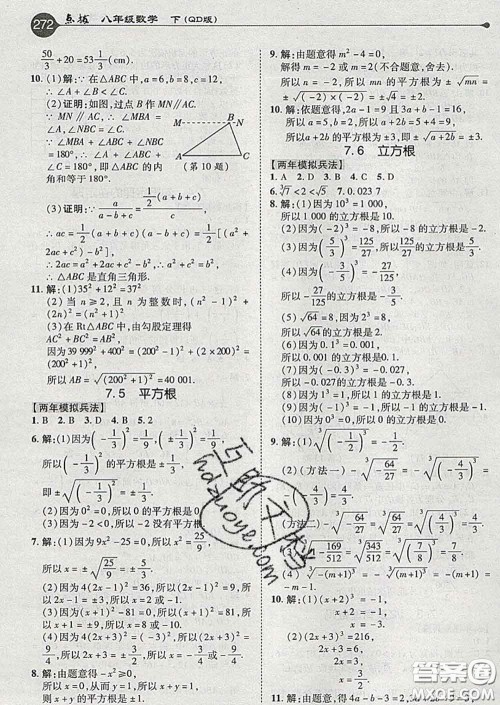 272 点拨 八年级数学 下(QD版)
50/3+20=53 1/3(cm).
10. (1)解:∵在△ABC中,a=6,b=8,c=12,
∴∠A+∠B<∠C.
(2)证明:如图,过点B作MN∥AC.
∵MN∥AC,∴∠MBA=∠A,∠NBC=∠C.
∵∠MBA+∠ABC+∠NBC=180°,∴∠A+∠ABC+∠C=180°,即△ABC的内角和等于180°.
M N
A C
(第10题)
(3)证明:∵a/(a-b+c)=(1/2(a+b+c))/c,
∴ac=1/2(a+b+c)(a-b+c)=1/2[(a²+2ac+c²)-b²].
∴2ac=a²+2ac+c²-b².∴a²+c²=b².
∴△ABC是直角三角形.
11. 解:(1)35²+12²=37²
(2)当n≥2,且n为整数时,(n²-1)²+(2n)²=(n²+1)²
(3)在Rt△ABC中,由勾股定理得
AC²+BC²=AB².
因为39 999²+400²=(200²-1)²+(2×200)²=(200²+1)²,
所以AB=√(200²+1)²=40 001.
7.5 平方根
[两年模拟兵法]
1. B 2. B 3. D 4. B 5. 2
6. 解:(1)因为(-1/3)²=1/9,(±1/3)²=1/9,
所以(-1/3)²的平方根为±1/3,
即±√(-1/3)²=±1/3.
(2)因为0²=0,所以0的平方根为0
(3)因为-2<0,所以-2没有平方根.
7. 解:(1)因为9x²-25=0,所以x²=25/9,
所以x=±√(25/9)=±5/3.
(2)因为4(2x-1)²=36,所以(2x-1)²=9,
所以2x-1=±3,所以x=2或x=-1.
(3)因为(x+1)²-81=0,所以(x+1)²=81,
所以x+1=±9,所以x=8或-10.
(4)因为2(x-1)²=50,所以(x-1)²=25,
所以x-1=±5,所以x=6或x=-4.
8. 解:由题意得-x²≥0,
所以x=0,从而y=1,所以x+y=1,
所以x+y的平方根为±1.
9. 解:由题意得m²-4=0,
解得m=-2或m=2(不合题意,舍去).
所以n=-2,所以mn的平方根为±√mn=±√(-2)×(-2)=±√4=±2.
10. 解:依题意得,2a-1=9且3a+b-1=16,
所以a=5,b=2,所以a+2b=5+4=9,
所以a+2b的平方根为±3,即±√(a+2b)=±3.
7.6 立方根
[两年模拟兵法]
1. A 2. D 3. B 4. C 5. D
6. ∛7<2<√5 7. 0.023 7
8. 解:(1)因为10³=1 000,
所以1 000的立方根是10.
(2)因为(-2)³=-8,所以-8的立方根是-2.
(3)因为(5/3)³=125/27,所以125/27的立方根是5/3.
(4)因为(-3/5)³=-27/125,
所以-27/125的立方根是-3/5.
(5)因为√64=8,2³=8,
所以√64的立方根是2.
(6)因为0.1³=0.001,
所以0.001的立方根是0.1.
9. 解:(1)∛(-1/2)³=-1/2.
(2)(方法一)-∛(-64/27)=-∛(-4/3)³=-(-4/3)=4/3.
(方法二)-∛(-64/27)=∛(64/27)=∛(4/3)³=4/3.
(3)∛(1-169/512)=∛(343/512)=∛(7/8)³=7/8.
(4)-∛-(m+1)³=-[-∛(m+1)³]=∛(m+1)³=m+1.
10. 解:(1)(x+2)³=-1,
x+2=-1,
x=-3.
(2)(x+2)³=216,
11. 解:由题意得4a-b-3=27,
互助文档
hdzuoye.com
答案圈
MXQE.COM